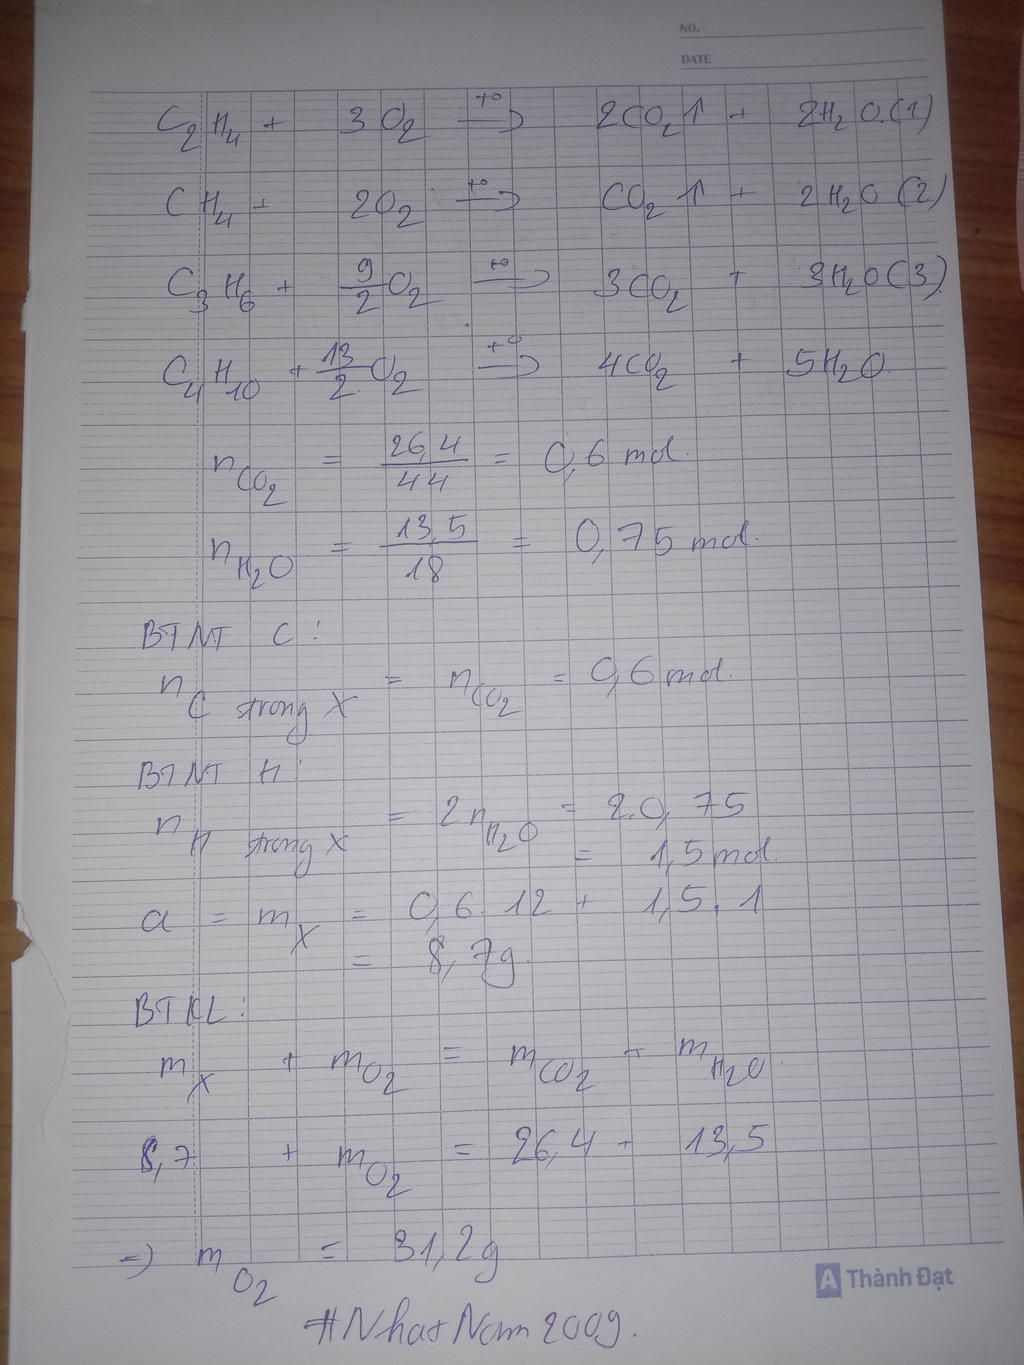 NO.
DATE
C₂H₄ + 3O₂ →(t⁰) 2CO₂↑ + 2H₂O.(1)
CH₄ + 2O₂ →(t⁰) CO₂↑ + 2H₂O (2)
C₃H₆ + 9/2 O₂ →(t⁰) 3CO₂ + 3H₂O (3)
C₄H₁₀ + 13/2 O₂ →(t⁰) 4CO₂ + 5H₂O
n_CO₂ = 26,4/44 = 0,6 mol.
n_H₂O = 13,5/18 = 0,75 mol.
BTNT C:
n_C trong X = n_CO₂ = 0,6 mol.
BTNT H:
n_H trong X = 2n_H₂O = 2.0,75
= 1,5 mol.
a = m_X = 0,6.12 + 1,5.1
= 8,7g.
BTKL:
m_X + m_O₂ = m_CO₂ + m_H₂O.
8,7 + m_O₂ = 26,4 + 13,5
=) m_O₂ = 31,2g
A Thành Đạt
#NhatNam2009.